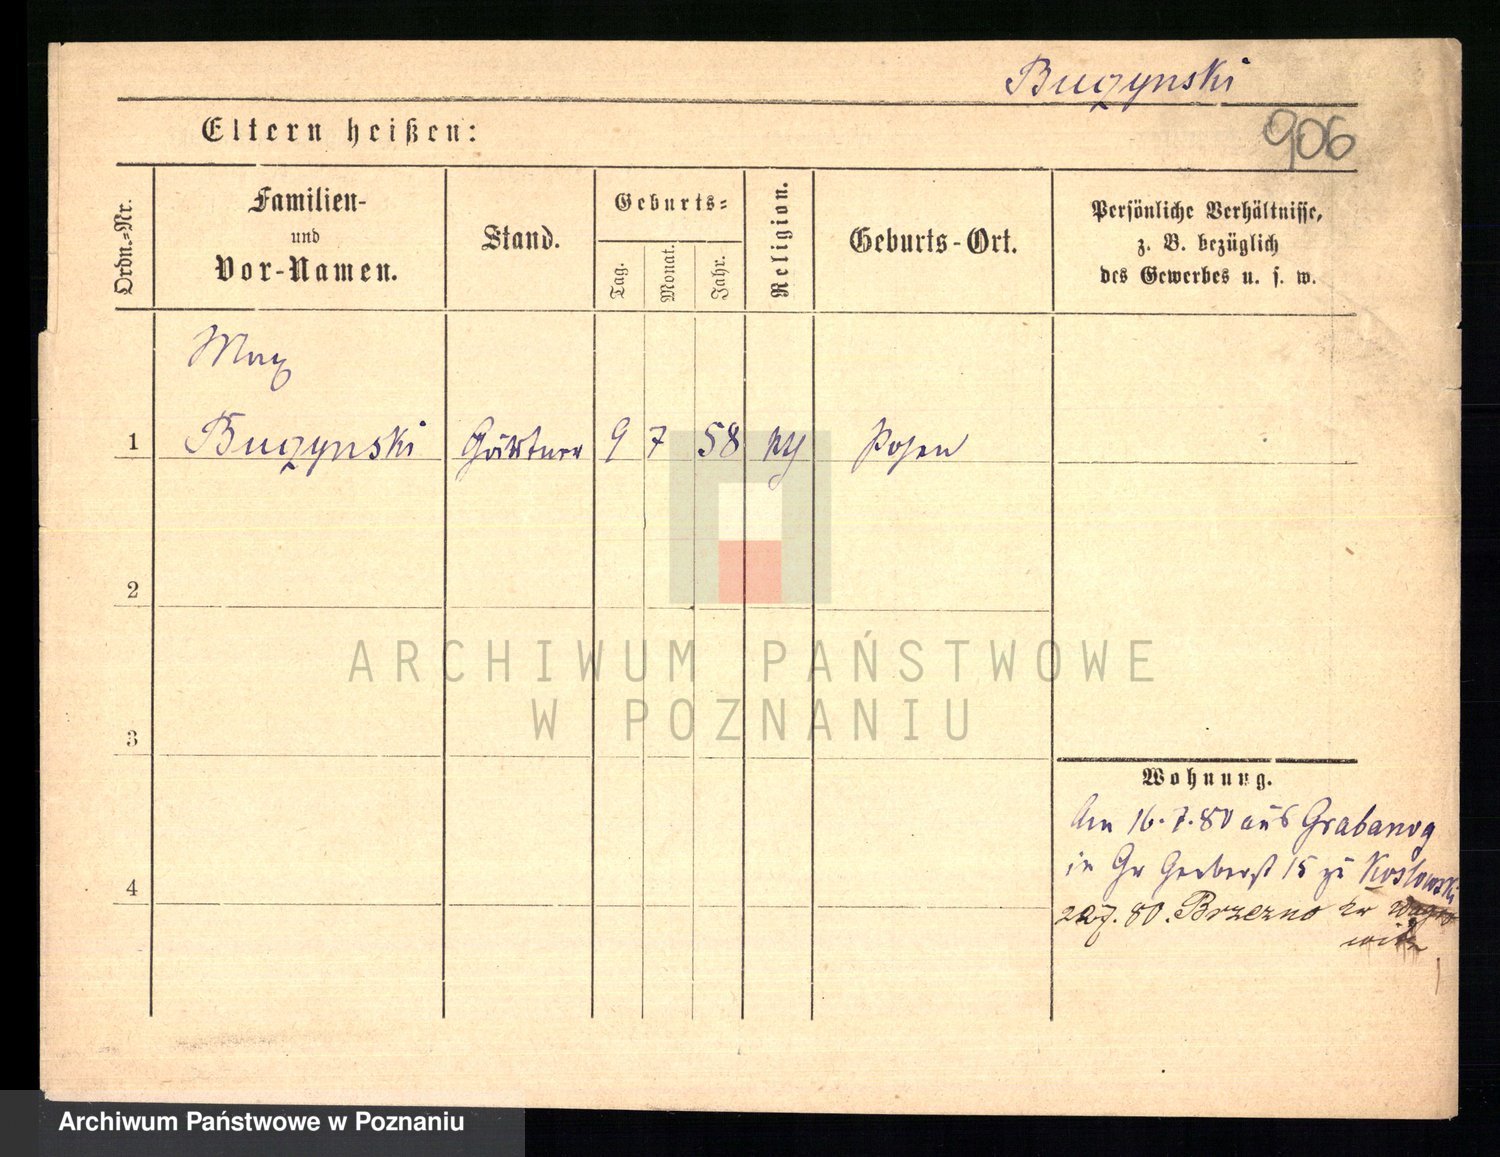 Buczynski
906
Eltern heißen:
Ordn.-Nr.
Familien-
und
Vor-Namen.
Stand.
Geburts-
Tag.
Monat.
Jahr.
Religion.
Geburts-Ort.
Persönliche Verhältnisse,
z. B. bezüglich
des Gewerbes u. s. w.
Max
1 Buczynski Gärtner 9 7 58 Posen
2
3
4
Wohnung.
Am 16.7.80 aus
in Gr Gerberst 15 zu Koslowski
7.80. Brzezno
ARCHIWUM PAŃSTWOWE
W POZNANIU
Archiwum Państwowe w Poznaniu